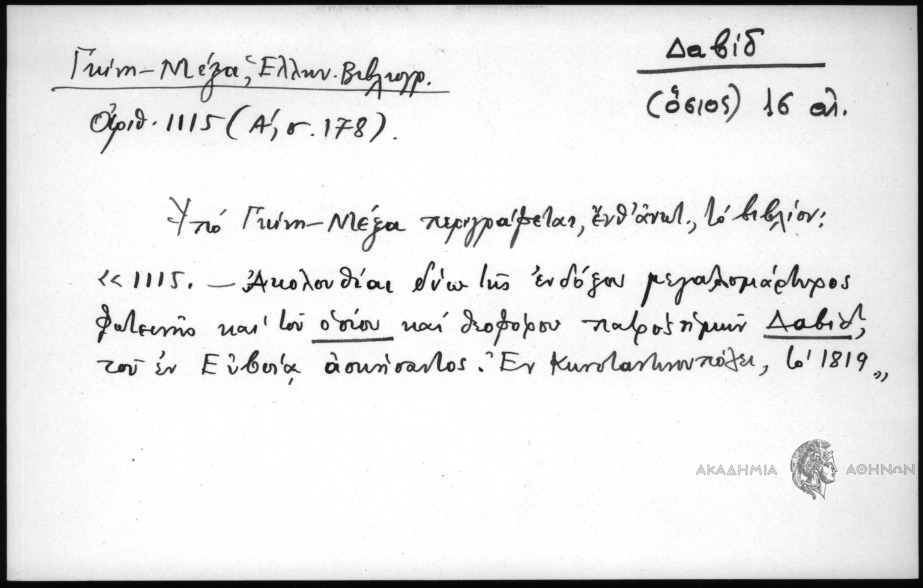 Δαβίδ
(ὅσιος) 16 αἰ.
Γκίνη-Μέξα, Ἑλλην. Βιβλιογρ.
ἀριθ. 1115 (Α', σ. 178).
Ὑπό Γκίνη-Μέξα περιγράφεται, ἔνθ' ἀνωτ., τό βιβλίον:
«1115. — Ἀκολουθίαι δύω τῆς ἐνδόξου μεγαλομάρτυρος
Φωτεινῆς καί τοῦ ὁσίου καί θεοφόρου πατρός ἡμῶν Δαβίδ,
τοῦ ἐν Εὐβοίᾳ ἀσκήσαντος. Ἐν Κωνσταντινουπόλει, τό 1819»
ΑΚΑΔΗΜΙΑ ΑΘΗΝΩΝ